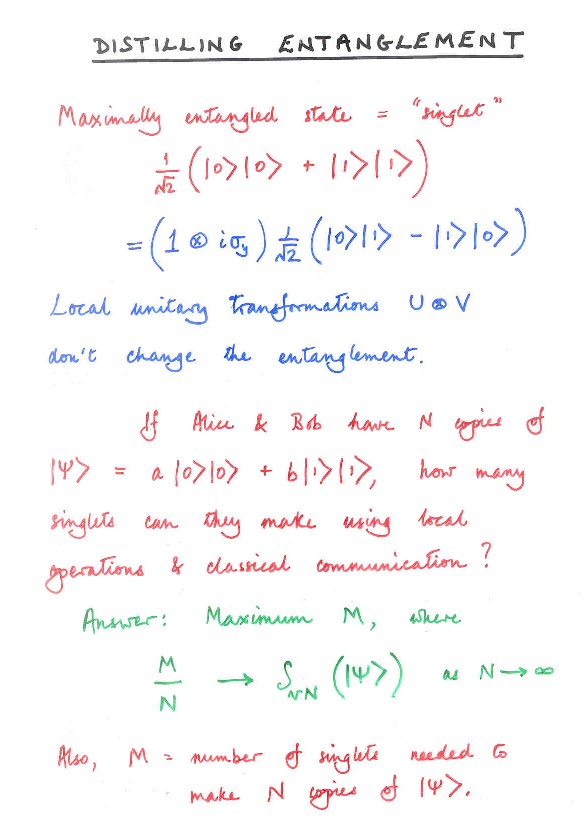 DISTILLING ENTANGLEMENT
Maximally entangled state = "singlet"
1/√2 (|0>|0> + |1>|1>)
= (1 ⊗ iσy) 1/√2 (|0>|1> - |1>|0>)
Local unitary transformations U ⊗ V
don't change the entanglement.
If Alice & Bob have N copies of
|Ψ> = a|0>|0> + b|1>|1>, how many
singlets can they make using local
operations & classical communication?
Answer: Maximum M, where
M/N → SvN (|Ψ>) as N → ∞
Also, M = number of singlets needed to
make N copies of |Ψ>.